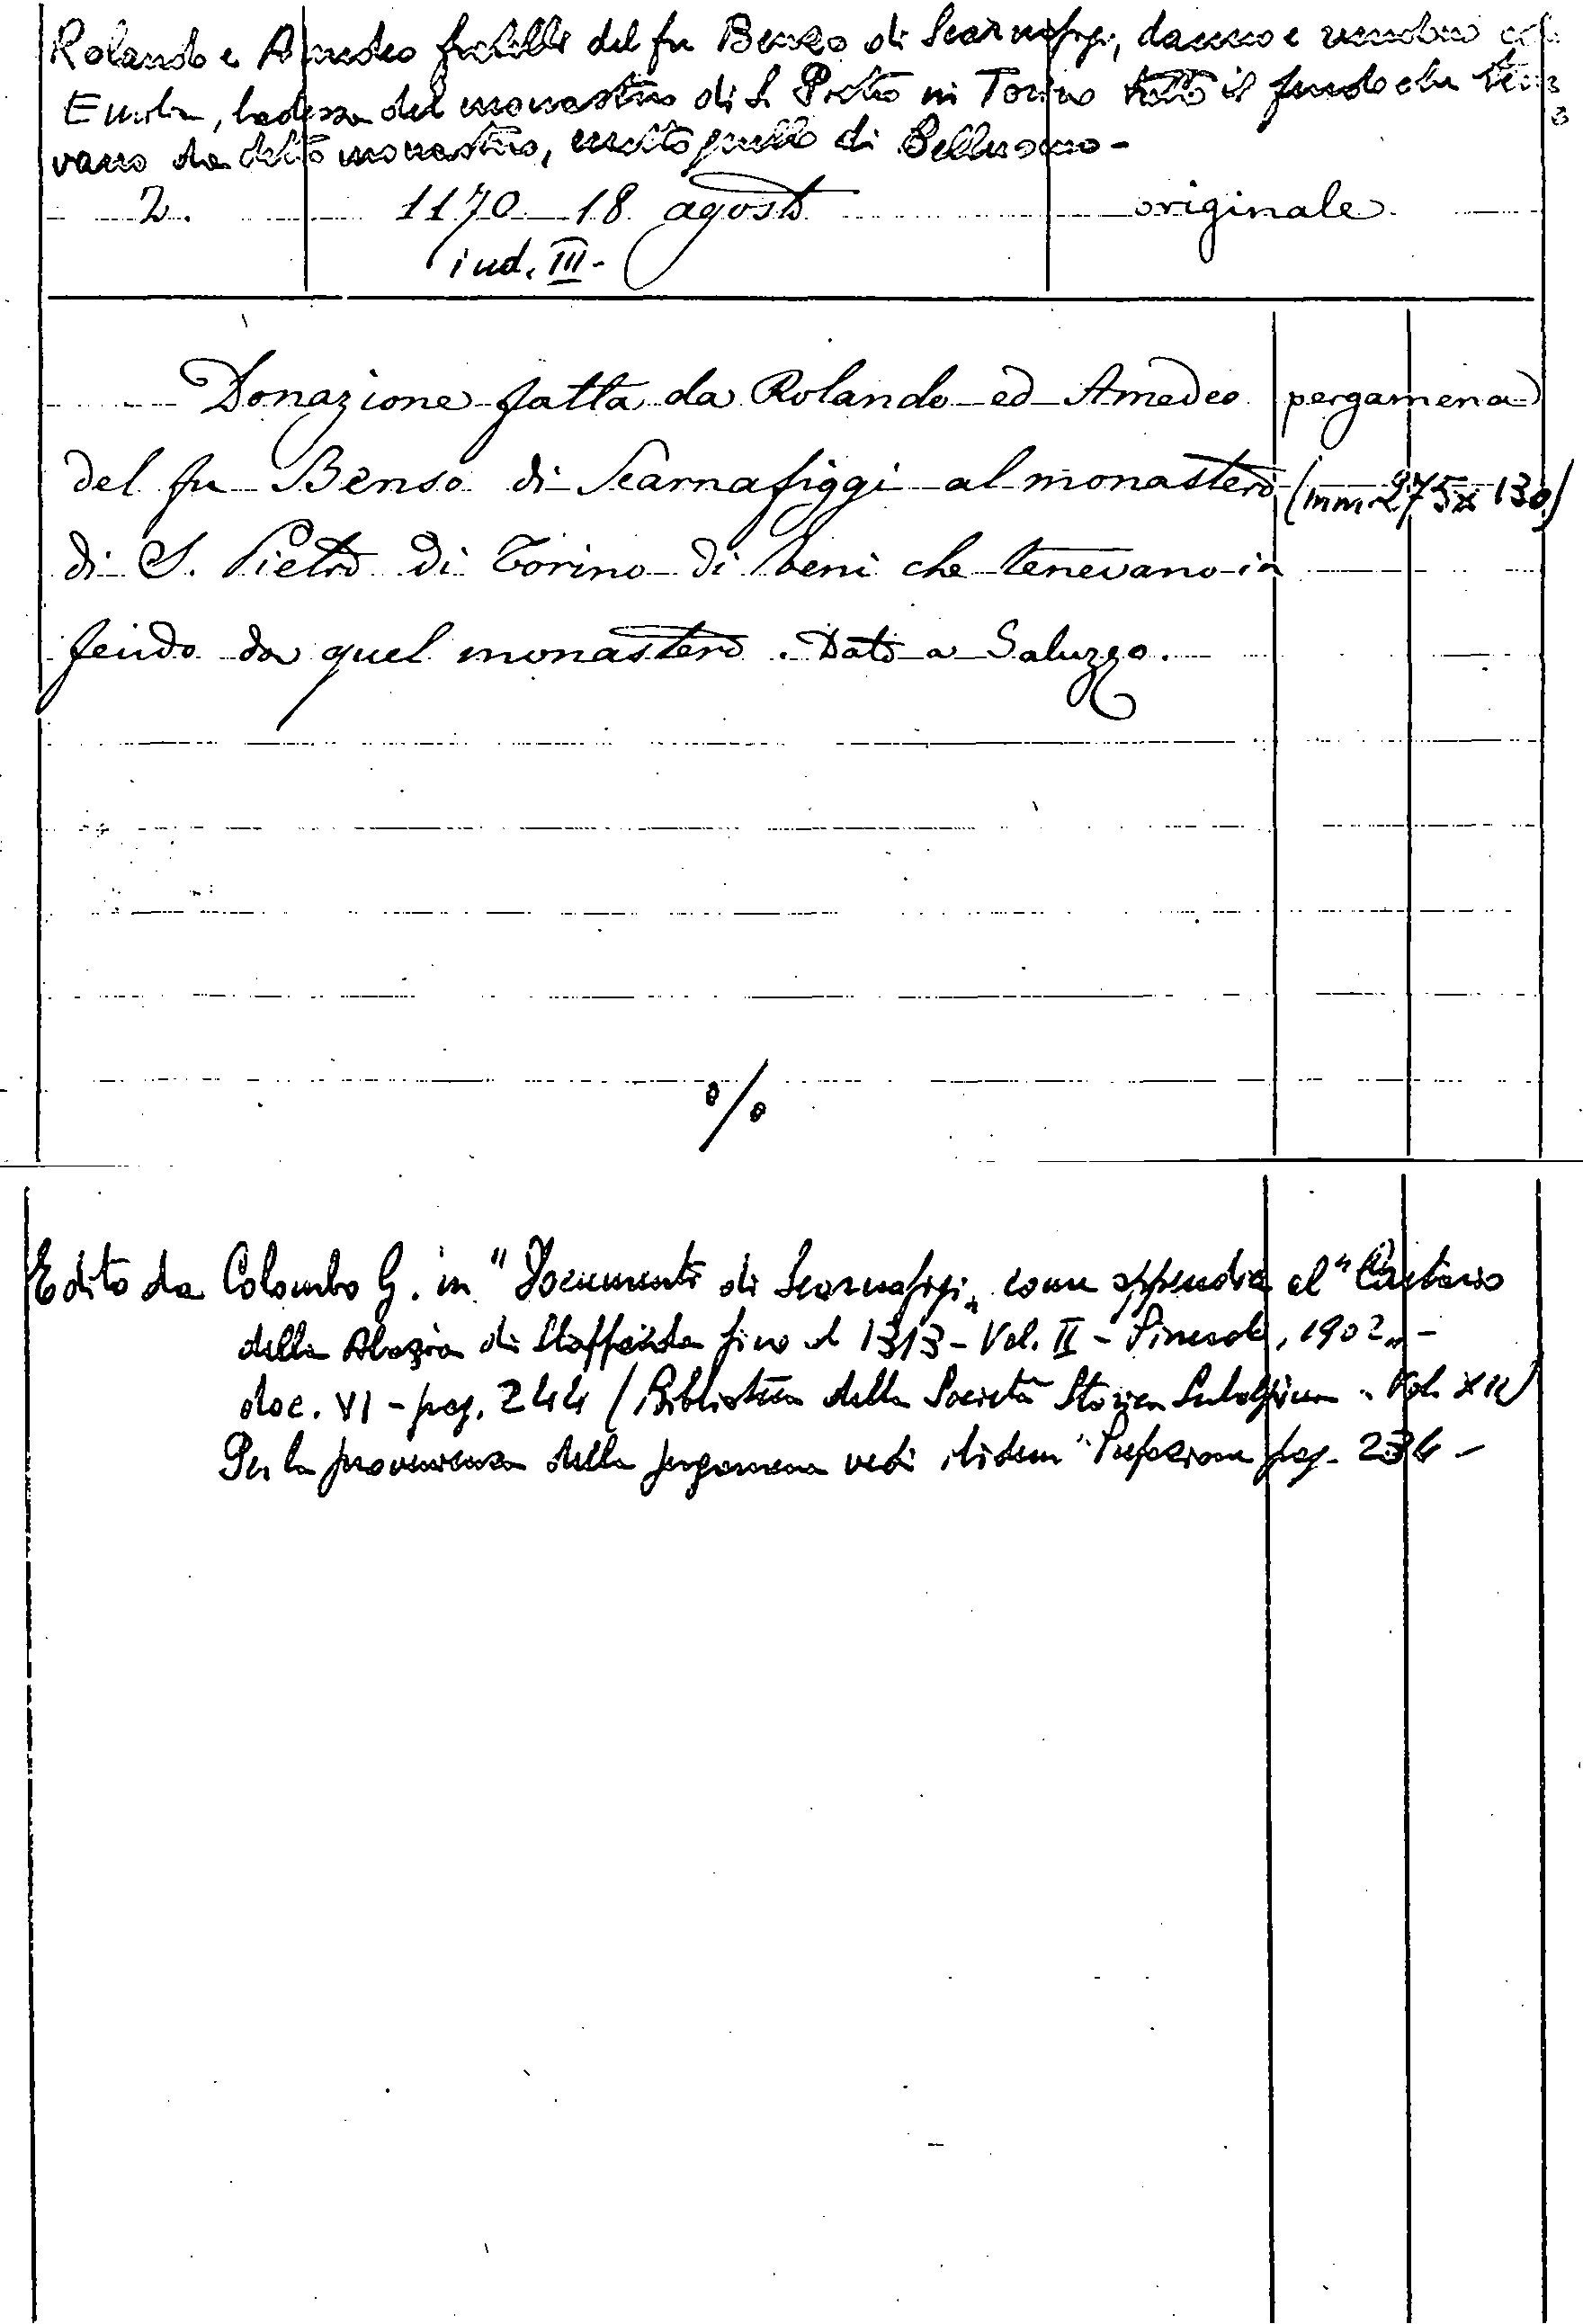 Rolando e Amedeo fratelli del fu Benzo di Scarnafigi, danno e vendono
Emilia, badessa del monastero di S. Pietro in Torino tutto il feudo che tene
vano da detto monastero, eccetto quello di
2. 1170 18 agosto originale
ind. III -
Donazione fatta da Rolando ed Amedeo pergamena
del fu Benso di Scarnafiggi al monastero (mm 275 x 130)
di S. Pietro di Torino di beni che tenevano in
feudo da quel monastero. Dato a Saluzzo.
%
Edito da Colombo G. in "Documenti di Scarnafigi" come appendice al "Cartario
della Abazia di Staffarda fino al 1313 - Vol. II - Pinerolo, 1902" -
doc. VI - pag. 244 (Biblioteca della Società Storica Subalpina - Vol. XIV)
Per la provenienza della pergamena vedi ibidem "Prefazione pag. 234 -